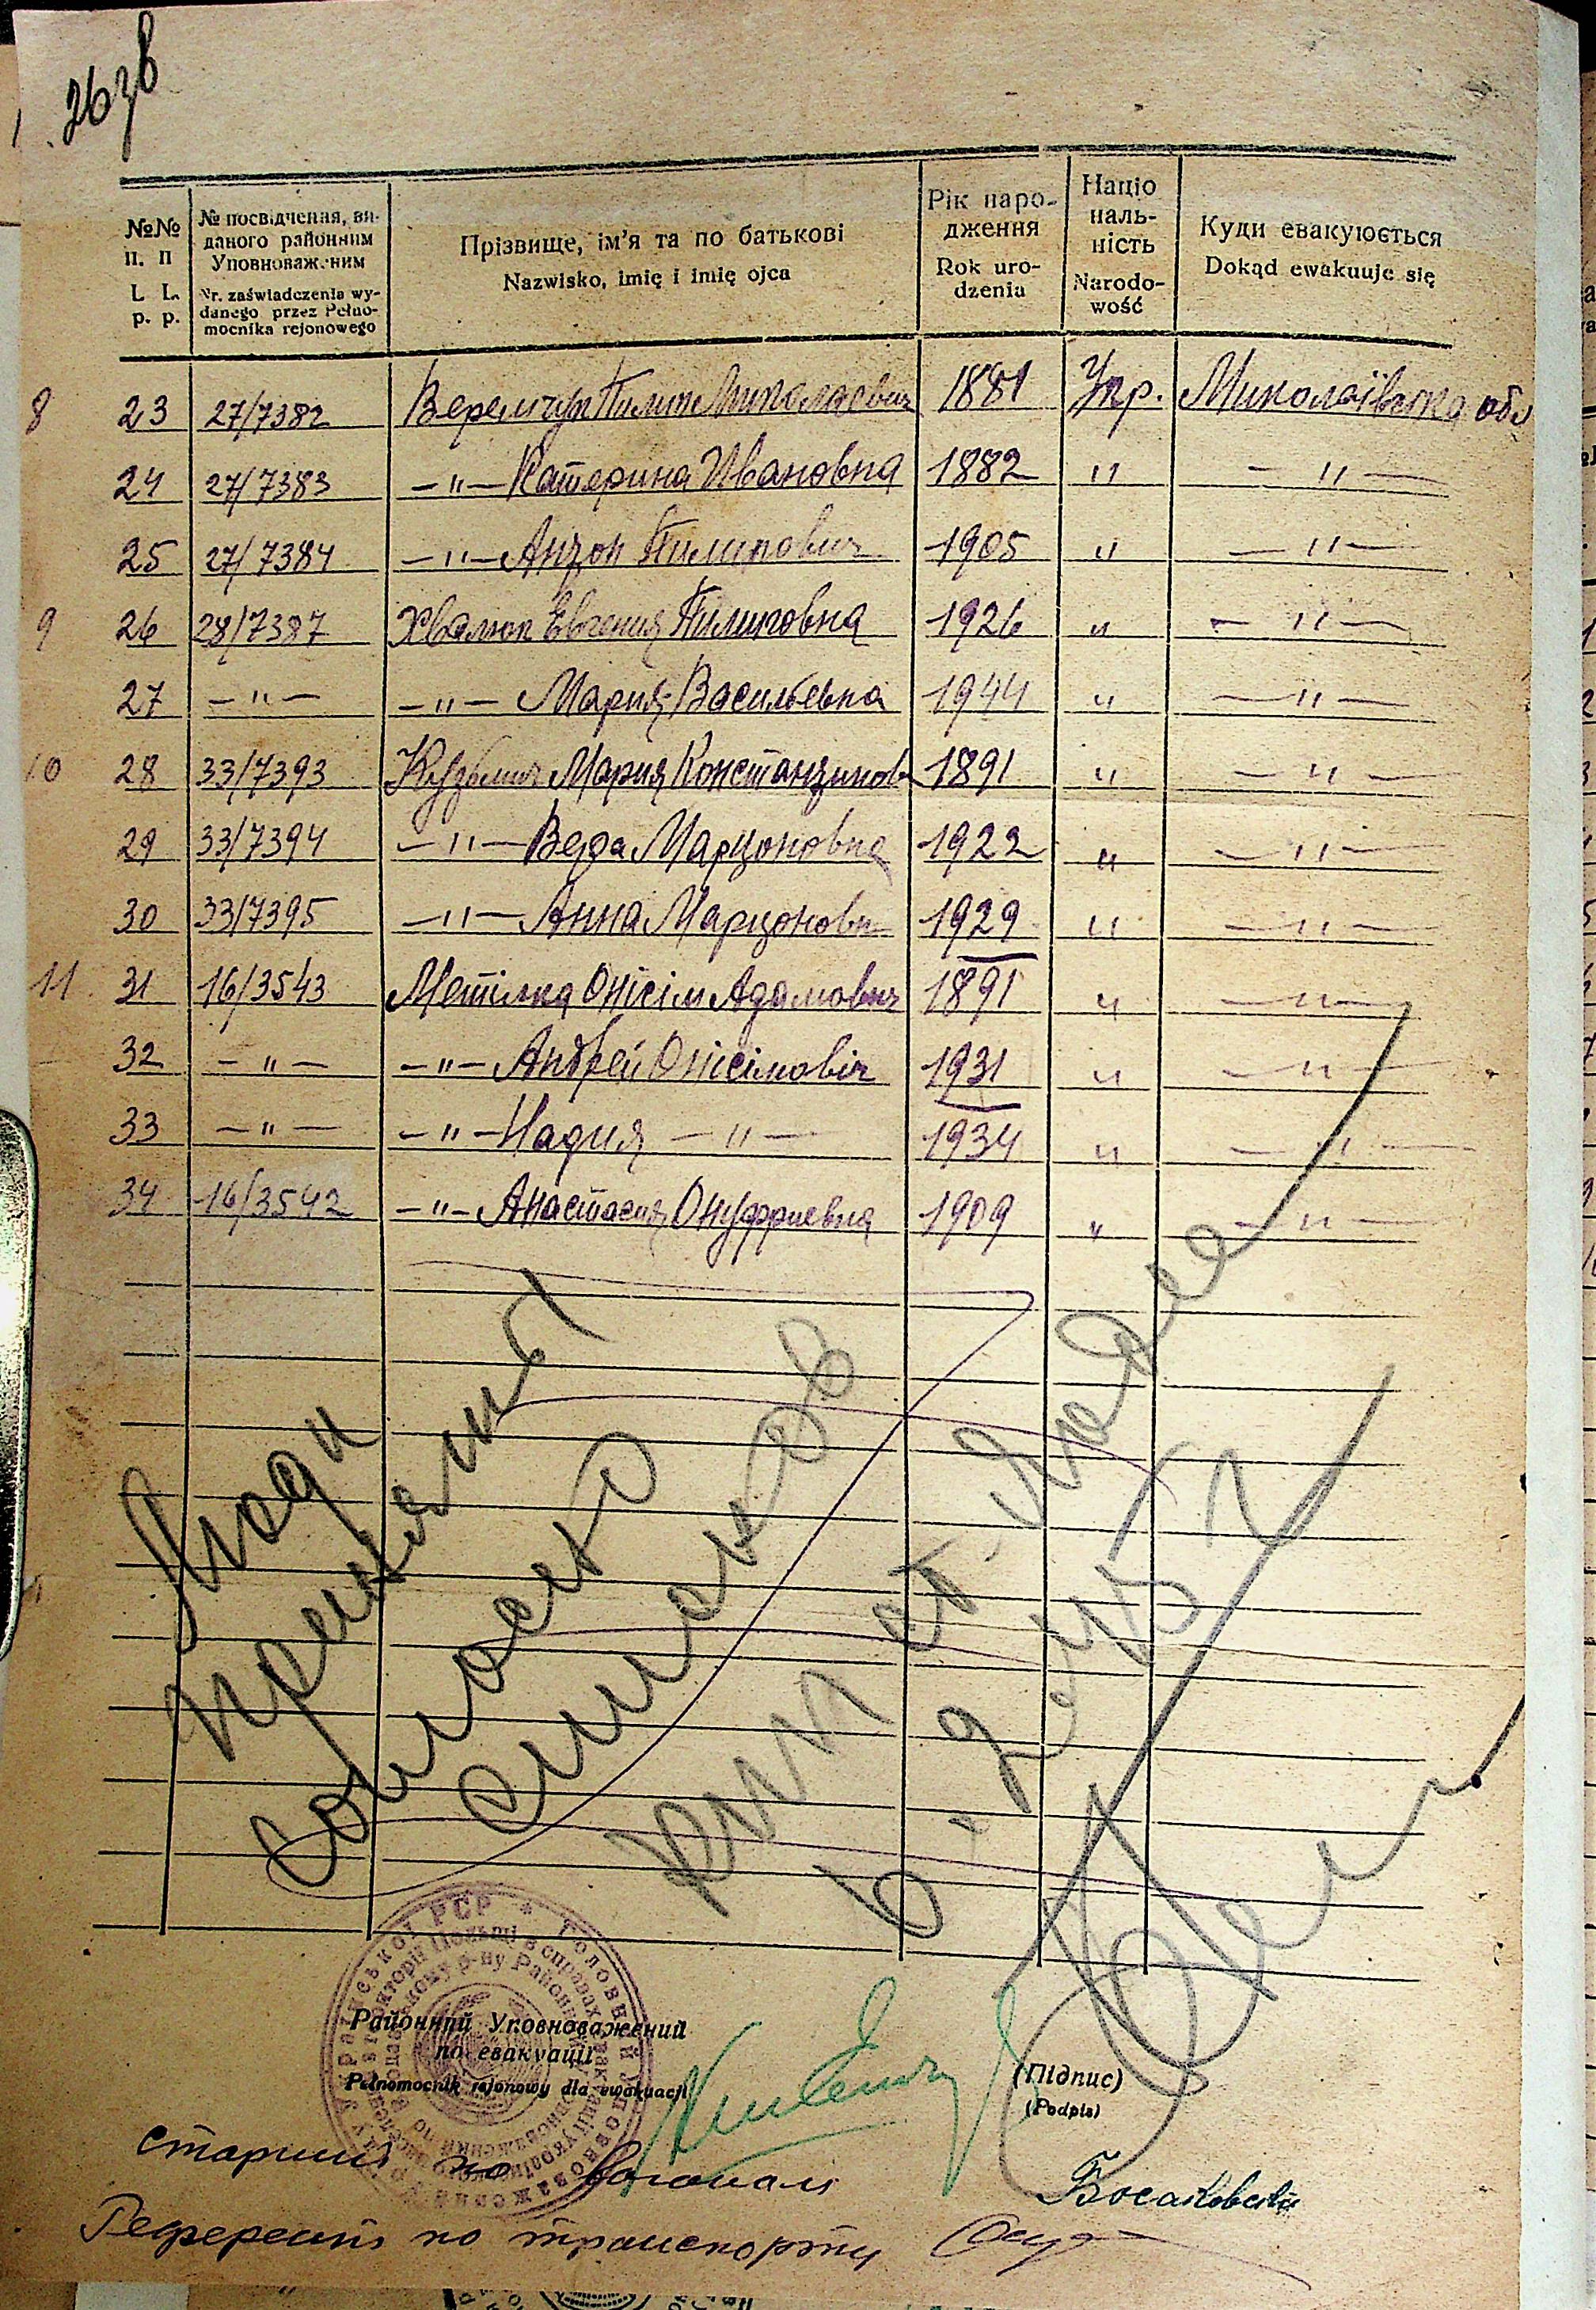 26 зв
№№ п. п
L. L. p. p.
№ посвідчення, виданого районним Уповноваженим
Nr. zaświadczenia wydanego przez Pełnomocnika rejonowego
Прізвище, ім'я та по батькові
Nazwisko, imię i imię ojca
Рік народження
Rok urodzenia
Національність
Narodowość
Куди евакуюється
Dokąd ewakuuje się
8 23 27/7382 Веремчук Пилип Миколаевич 1881 Укр. Миколаївська обл
24 27/7383 —"— Катерина Ивановна 1882 " —"—
25 27/7384 —"— Антон Пилипович 1905 " —"—
9 26 28/7387 Хвалюк Евгения Пилиповна 1926 " —"—
27 —"— —"— Мария Васильевна 1944 " —"—
10 28 33/7393 Кузьмич Мария Константинов 1891 " —"—
29 33/7394 —"— Вера Марцоновна 1922 " —"—
30 33/7395 —"— Анна Марцоновн 1929 " —"—
11 31 16/3543 Метілка Онісім Адамович 1891 " —"—
32 —"— —"— Андрей Онісімовіч 1931 " —"—
33 —"— —"— Надия —"— 1934 " —"—
34 16/3542 —"— Анастасия Онуфриевна 1909 " —"—
Люди
приняты
согласно
списков
Районний Уповноважений
по евакуації
Pełnomocnik rejonowy dla ewakuacji
(Підпис)
(Podpis)
Старший по вагонам
Референт по транспорту